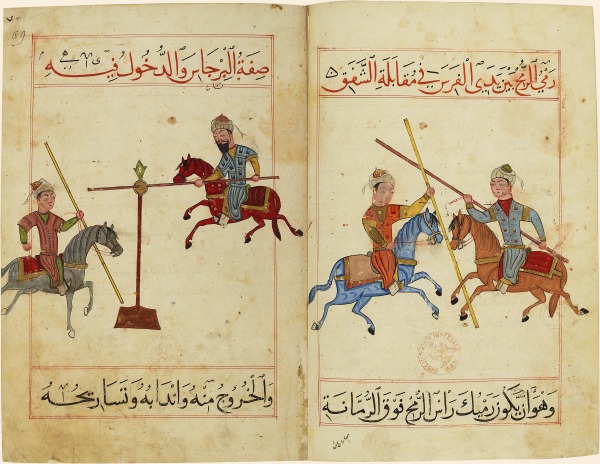 رمي الرمح بين يدي الفرس في مقابلة الشفق
وهو ان يكون رميك راس الرمح فوق الرمانة
صفة البرجاس والدخول فيه
والخروج منه واندابه وتساريحه